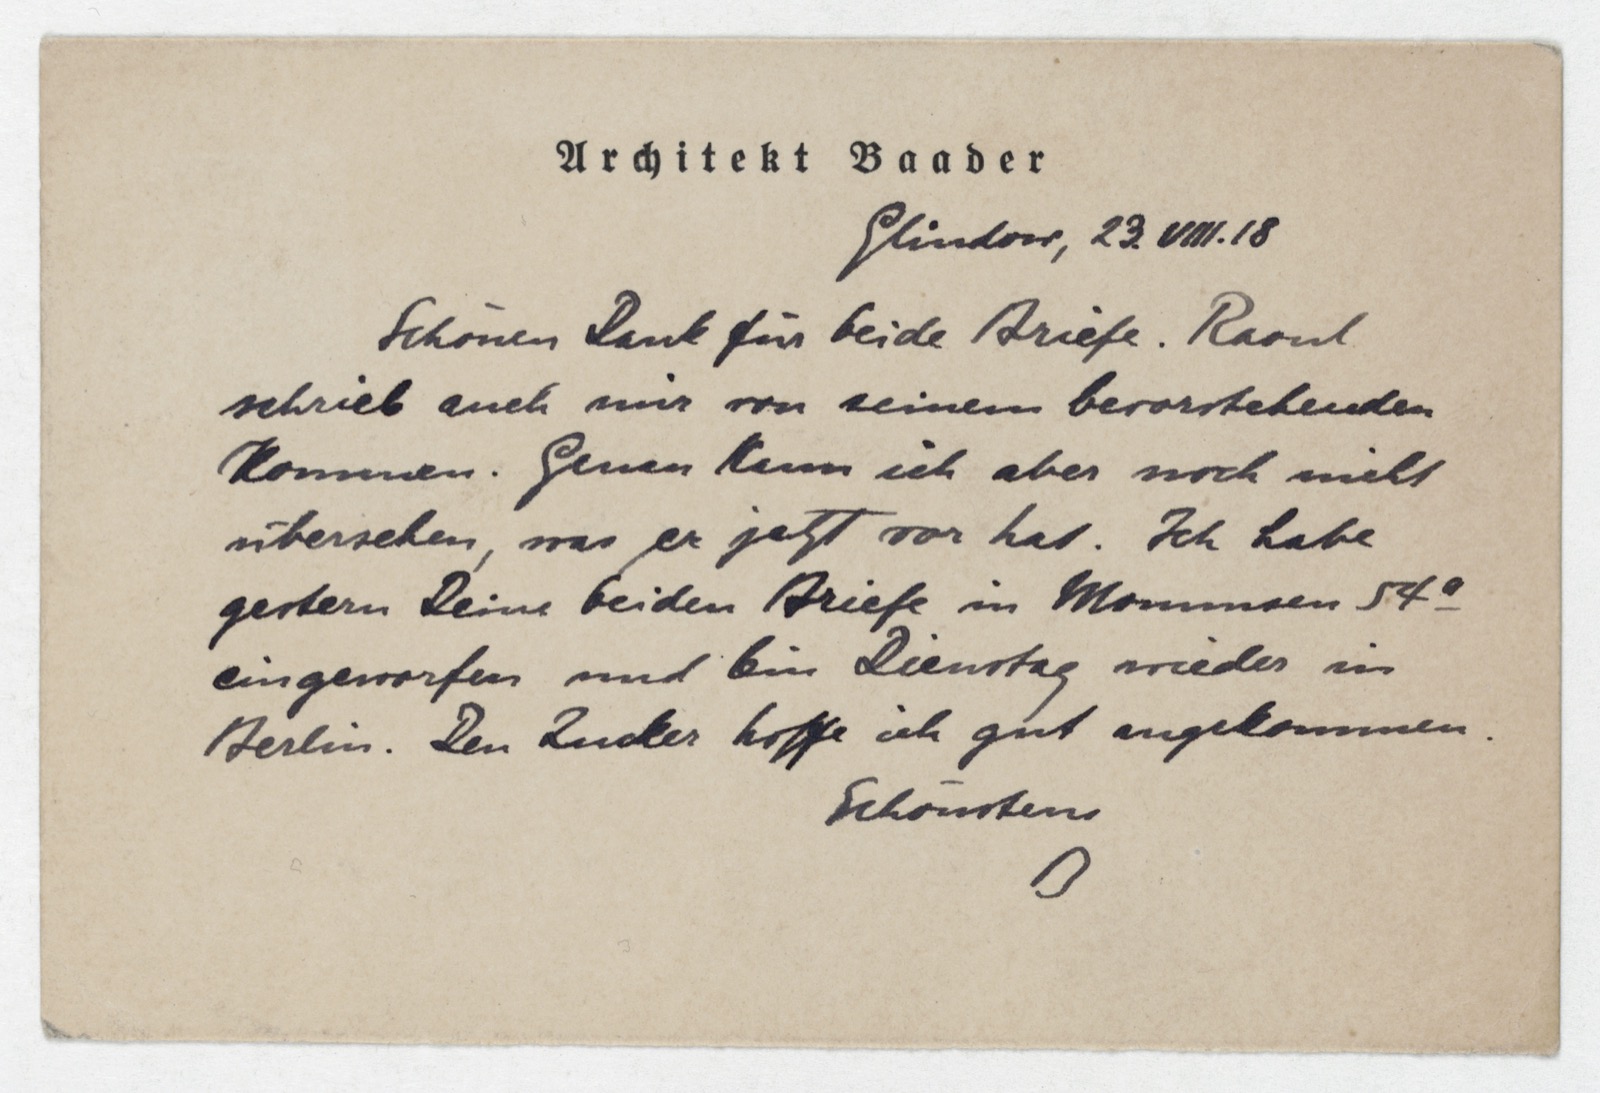 Architekt Baader
Glindow, 23. VIII. 18
Schönen Dank für beide Briefe. Raoul
schrieb auch mir von seinem bevorstehenden
Kommen. Genau kann ich aber noch nicht
übersehen, was er jetzt vor hat. Ich habe
gestern Deine beiden Briefe in Mommsen 54a
eingeworfen und bin Dienstag wieder in
Berlin. Den Zucker hoffe ich gut angekommen.
Schönstens
B